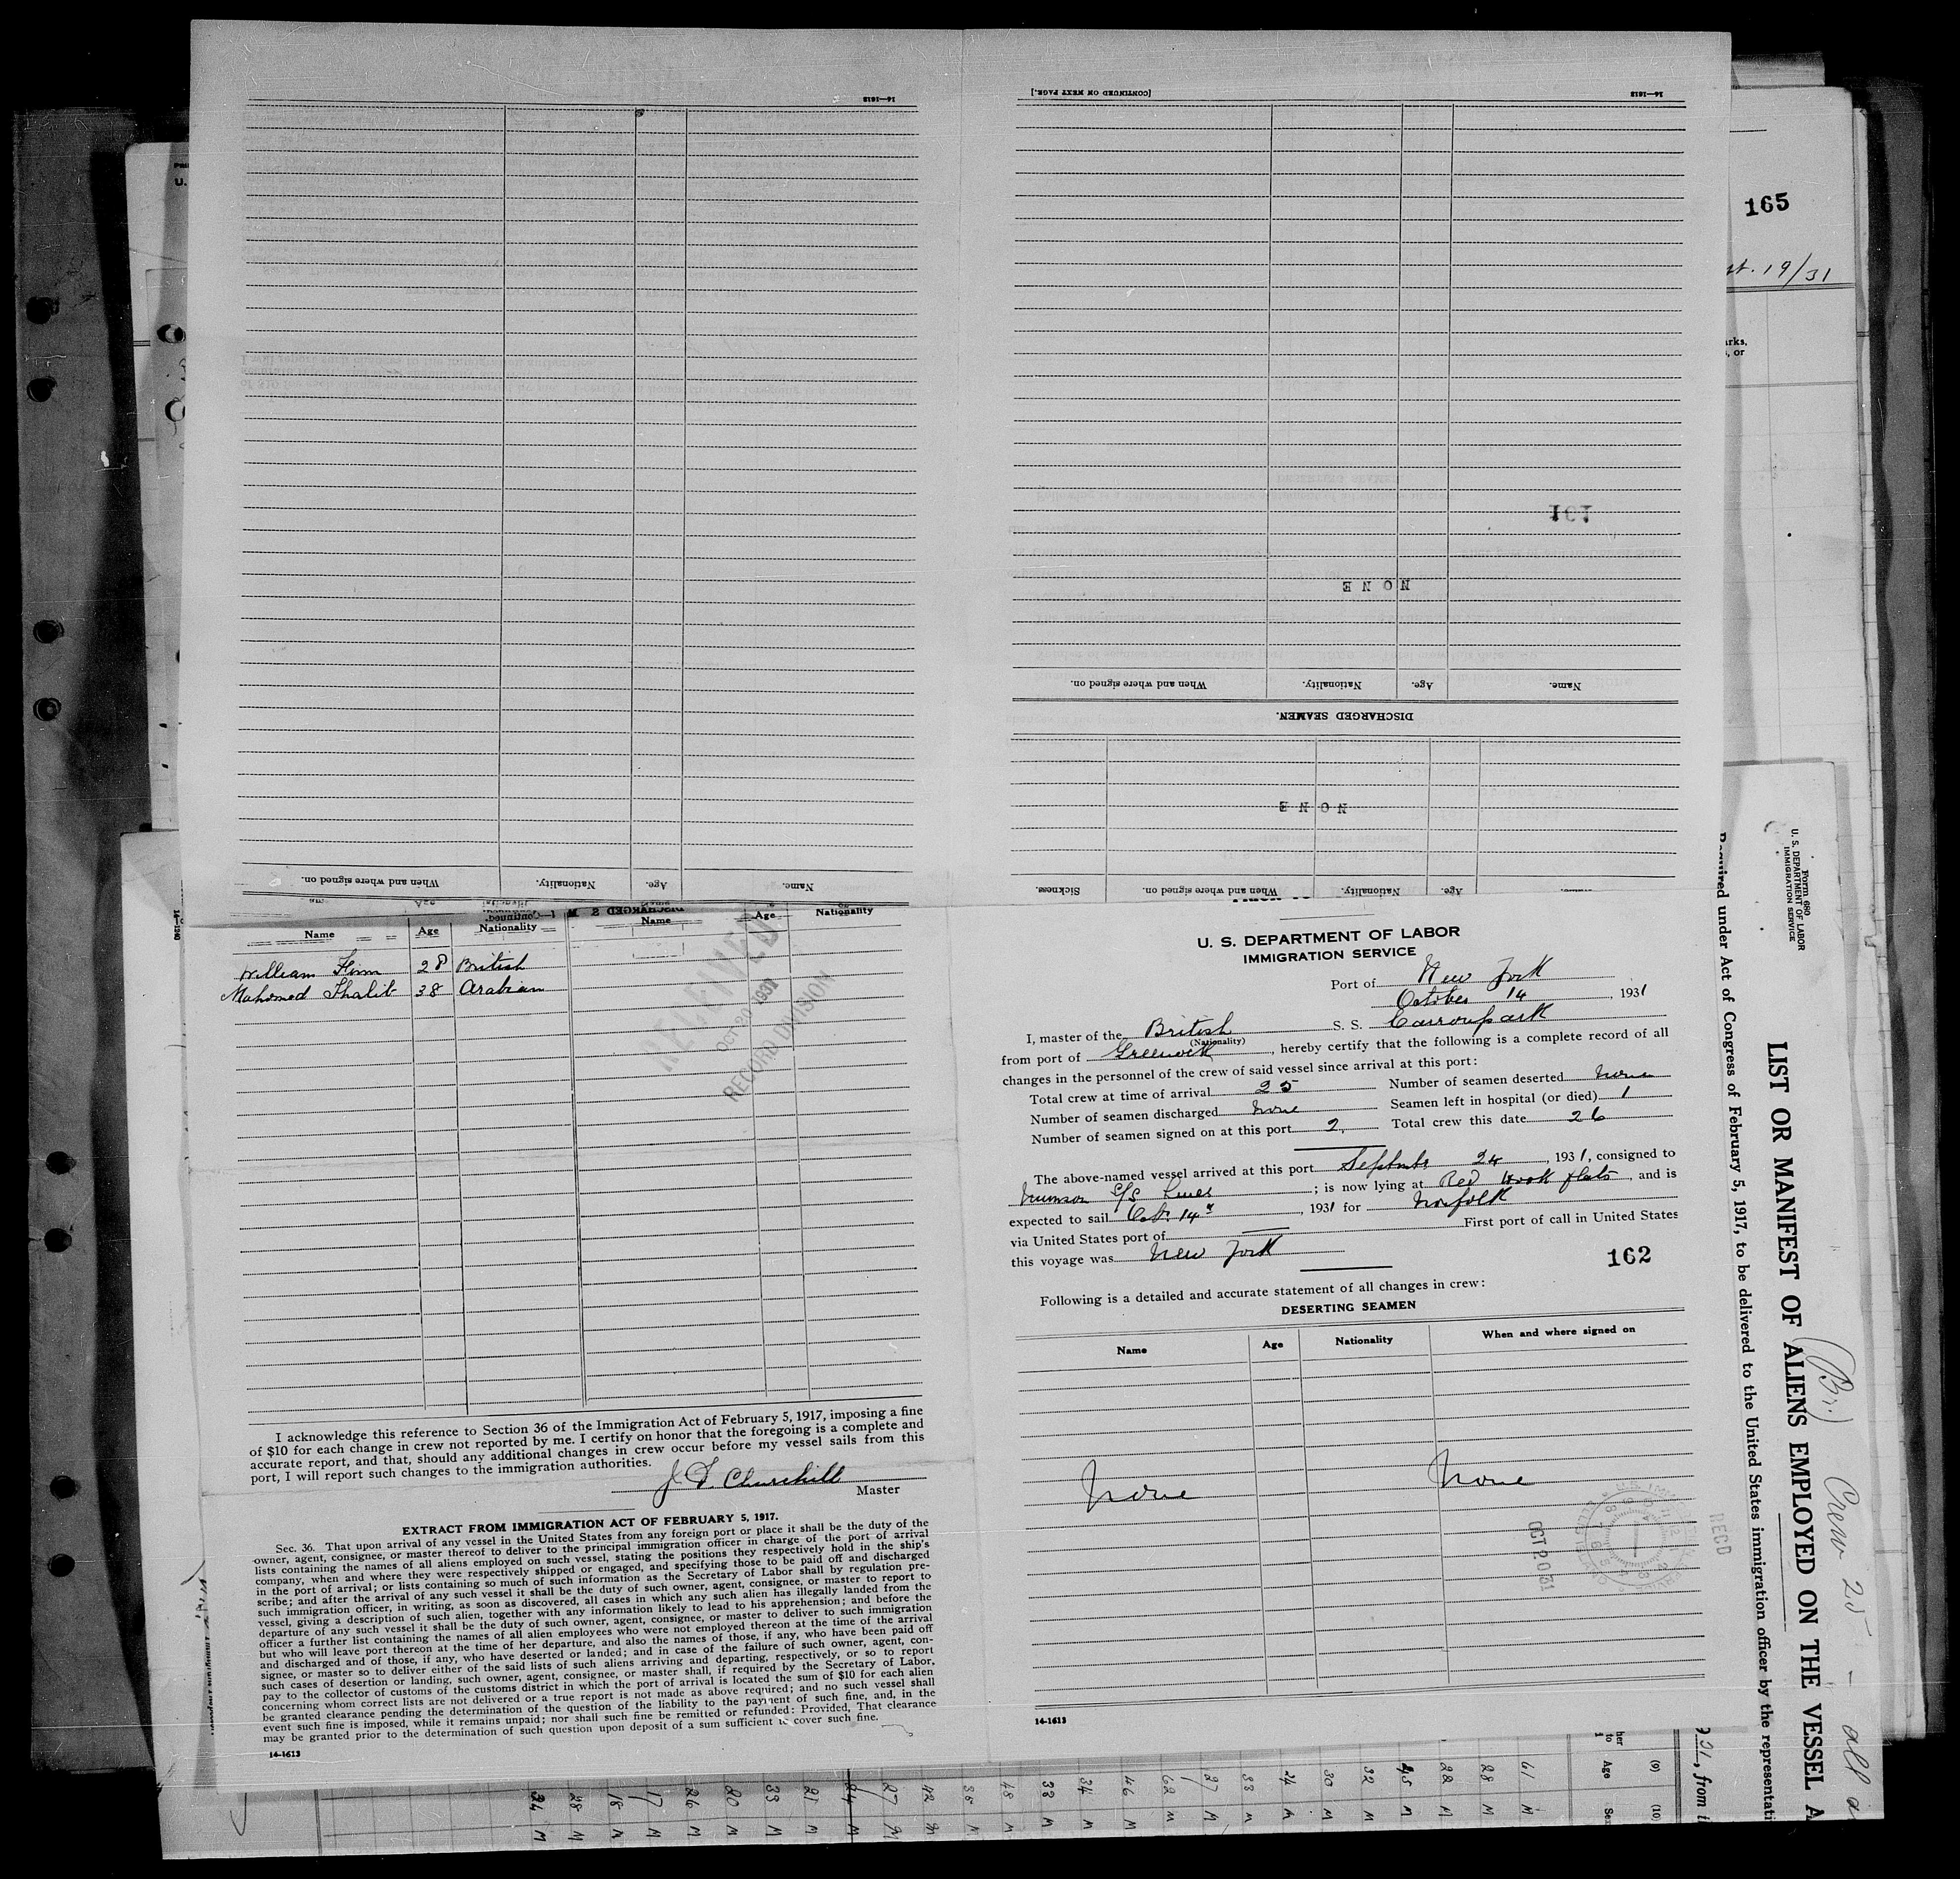 14—1613
[CONTINUED ON NEXT PAGE.]
14—1613
165
19/31
161
NONE
Name.
Age.
Nationality.
When and where signed on.
DISCHARGED SEAMEN.
NONE
Age.
Nationality.
When and where signed on.
Sickness.
Name.
Age.
Nationality.
When and where signed on.
Name Age Nationality Name Age Nationality
William 28 British
Mahomed 38 Arabian
RECEIVED
OCT 20 1931
RECORD DIVISION
I acknowledge this reference to Section 36 of the Immigration Act of February 5, 1917, imposing a fine
of $10 for each change in crew not reported by me. I certify on honor that the foregoing is a complete and
accurate report, and that, should any additional changes in crew occur before my vessel sails from this
port, I will report such changes to the immigration authorities.
Churchill
Master
EXTRACT FROM IMMIGRATION ACT OF FEBRUARY 5, 1917.
Sec. 36. That upon arrival of any vessel in the United States from any foreign port or place it shall be the duty of the
owner, agent, consignee, or master thereof to deliver to the principal immigration officer in charge of the port of arrival
lists containing the names of all aliens employed on such vessel, stating the positions they respectively hold in the ship's
company, when and where they were respectively shipped or engaged, and specifying those to be paid off and discharged
in the port of arrival; or lists containing so much of such information as the Secretary of Labor shall by regulation pre-
scribe; and after the arrival of any such vessel it shall be the duty of such owner, agent, consignee, or master to report to
such immigration officer, in writing, as soon as discovered, all cases in which any such alien has illegally landed from the
vessel, giving a description of such alien, together with any information likely to lead to his apprehension; and before the
departure of any such vessel it shall be the duty of such owner, agent, consignee, or master to deliver to such immigration
officer a further list containing the names of all alien employees who were not employed thereon at the time of the arrival
but who will leave port thereon at the time of her departure, and also the names of those, if any, who have been paid off
and discharged and of those, if any, who have deserted or landed; and in case of the failure of such owner, agent, con-
signee, or master so to deliver either of the said lists of such aliens arriving and departing, respectively, or so to report
such cases of desertion or landing, such owner, agent, consignee, or master shall, if required by the Secretary of Labor,
pay to the collector of customs of the customs district in which the port of arrival is located the sum of $10 for each alien
concerning whom correct lists are not delivered or a true report is not made as above required; and no such vessel shall
be granted clearance pending the determination of the question of the liability to the payment of such fine, and, in the
event such fine is imposed, while it remains unpaid; nor shall such fine be remitted or refunded: Provided, That clearance
may be granted prior to the determination of such question upon deposit of a sum sufficient to cover such fine.
14-1613
U. S. DEPARTMENT OF LABOR
IMMIGRATION SERVICE
Port of New York
October 14, 1931
I, master of the British S. S. Carronpark
(Nationality)
from port of Greenock, hereby certify that the following is a complete record of all
changes in the personnel of the crew of said vessel since arrival at this port:
Total crew at time of arrival 25 Number of seamen deserted none
Number of seamen discharged none Seamen left in hospital (or died) 1
Number of seamen signed on at this port 2. Total crew this date 26
The above-named vessel arrived at this port September 24, 1931, consigned to
Munson S/S Lines; is now lying at Red Hook flats, and is
expected to sail Oct. 14, 1931 for Norfolk
via United States port of First port of call in United States
this voyage was New York
162
Following is a detailed and accurate statement of all changes in crew:
DESERTING SEAMEN
Name Age Nationality When and where signed on
None None
OCT 20 31
REC'D
14-1613
Form 680
U. S. DEPARTMENT OF LABOR
IMMIGRATION SERVICE
LIST OR MANIFEST OF ALIENS EMPLOYED ON THE VESSEL
Required under Act of Congress of February 5, 1917, to be delivered to the United States immigration officer by the
(Br.) Crew 25 - all
from
(9) (10)
Age
61 M
28 M
22 M
45 M
32 M
30 M
24 M
33 M
27 M
62 M
46 M
34 M
33 M
48 M
35 M
42 M
27 M
24 M
21 M
33 M
20 M
26 M
17 M
18 M
28 M
24 M